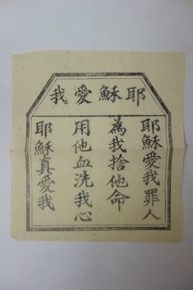 耶穌愛我
耶穌愛我罪人
為我捨他命
用他血洗我心
耶穌真愛我